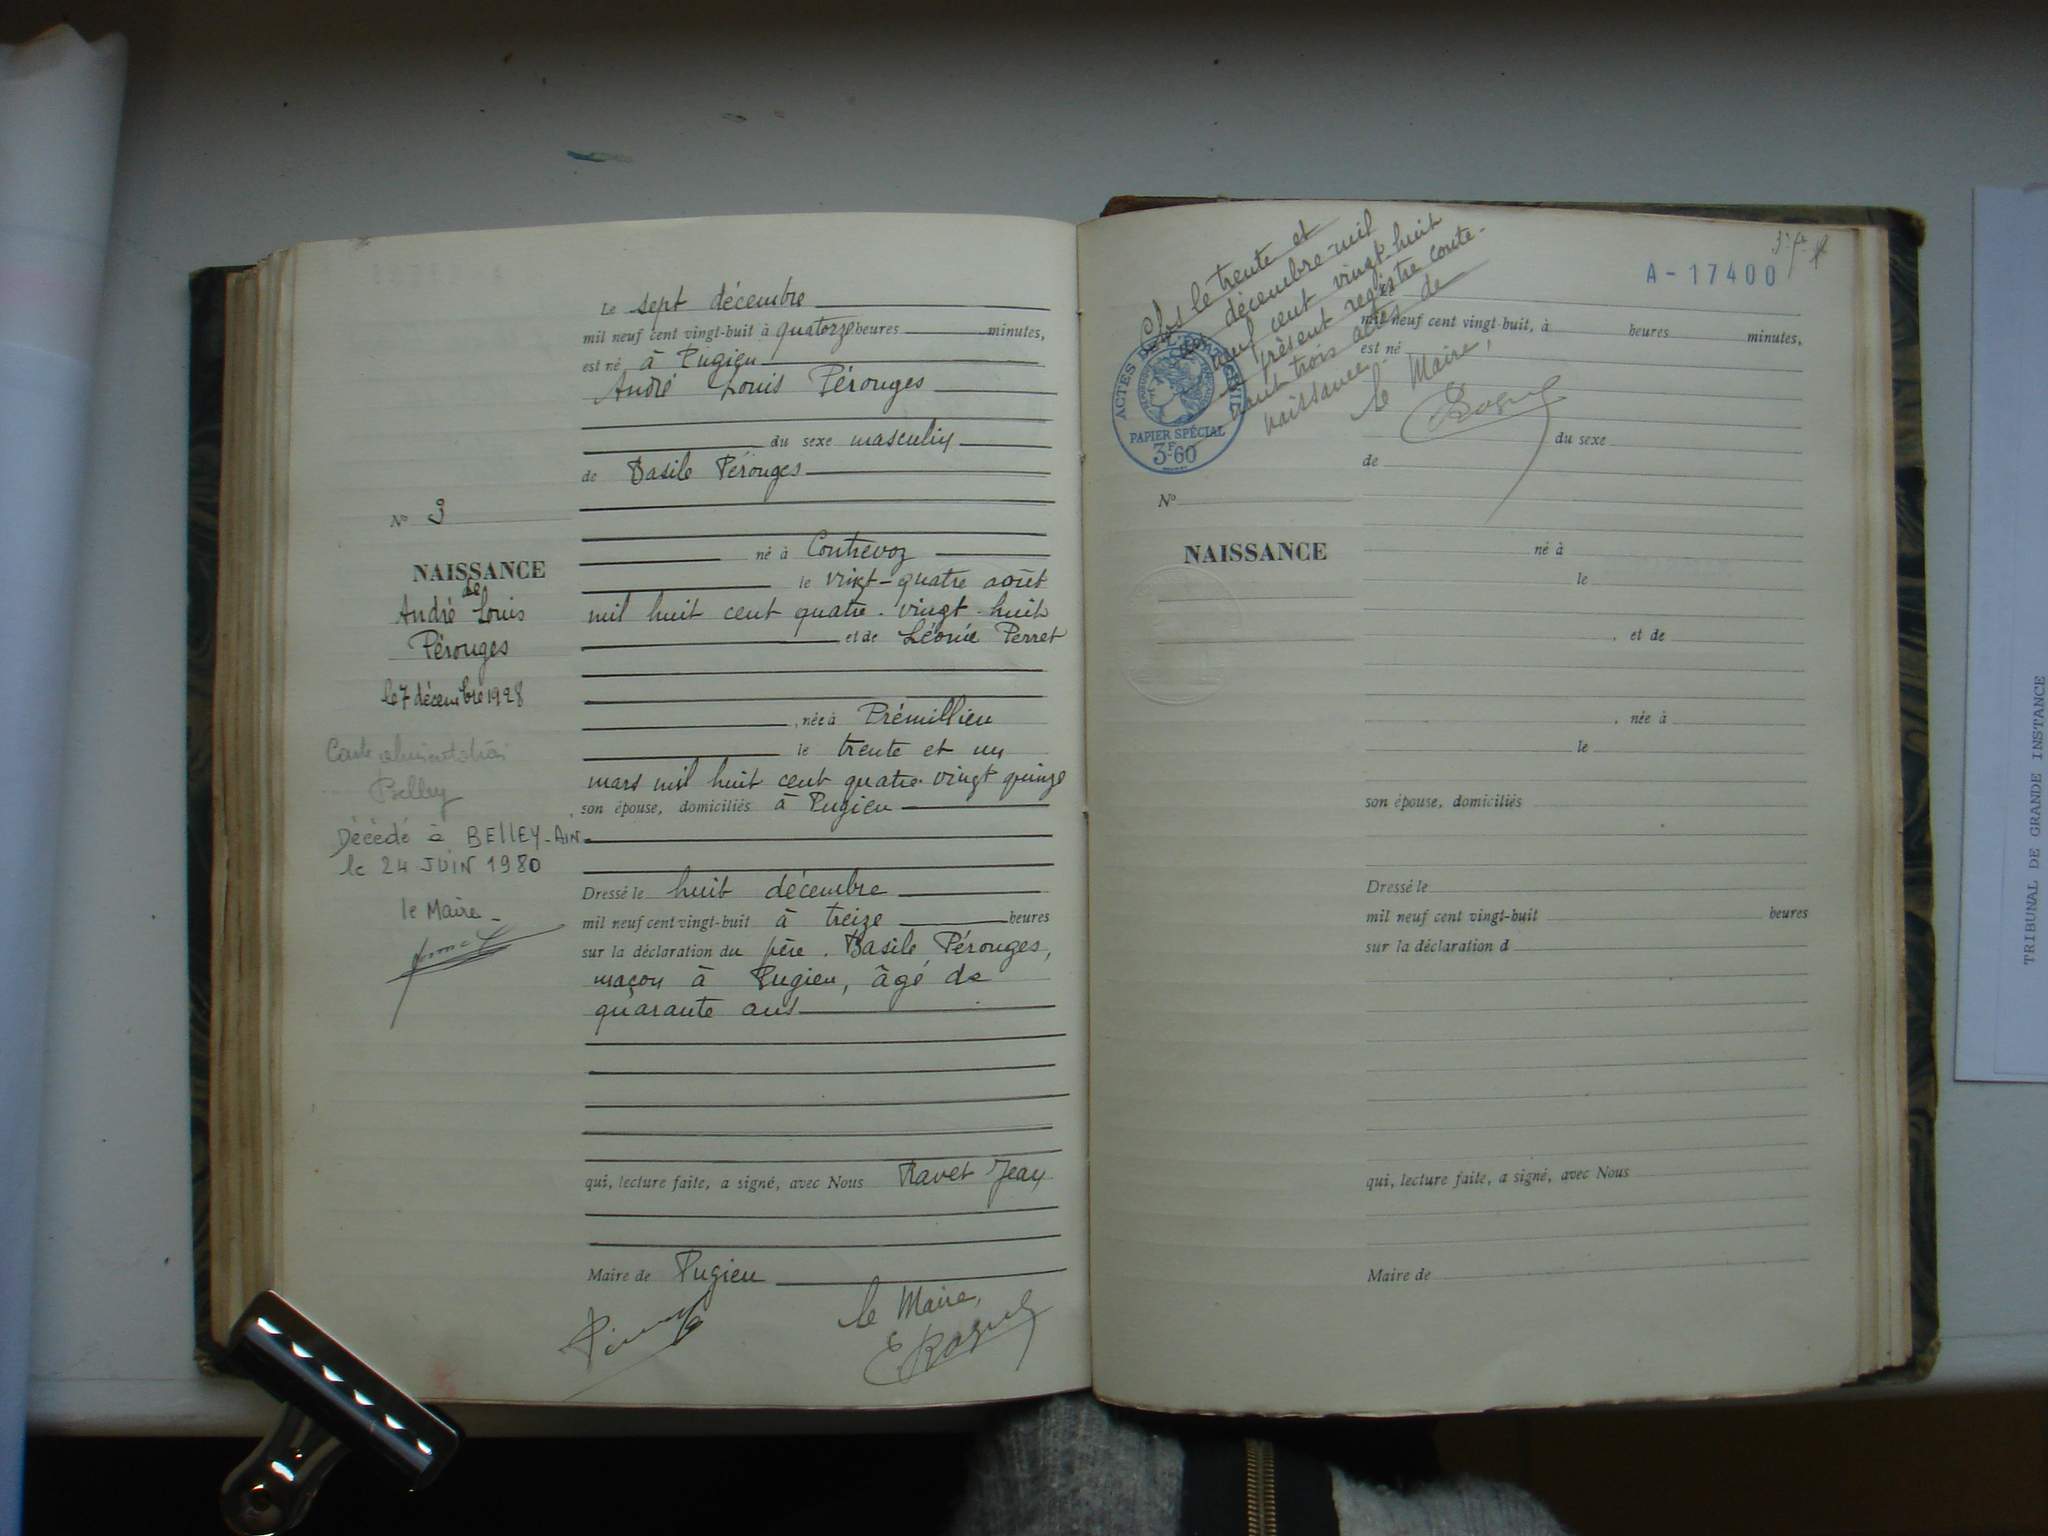 Le sept décembre
mil neuf cent vingt-huit à quatorze heures minutes,
est né à Pugieu
André Louis Pérouges
du sexe masculin
de Basile Pérouges
né à Contrevoz
le vingt-quatre août
mil huit cent quatre-vingt-huit
et de Léonie Perret
, née à Prémillieu
le trente et un
mars mil huit cent quatre-vingt quinze
son épouse, domiciliés à Pugieu
Dressé le huit décembre
mil neuf cent vingt-huit à treize heures
sur la déclaration du père. Basile Pérouges,
maçon à Pugieu, âgé de
quarante ans
qui, lecture faite, a signé, avec Nous Ravet Jean
Maire de Pugieu
le Maire,
No 3
NAISSANCE
de
André Louis
Pérouges
le 7 décembre 1928
Carte alimentation
Belley
Décédé à BELLEY-AIN
le 24 JUIN 1980
le Maire
A-17400
Clos le trente et
un décembre mil
neuf cent vingt-huit
le présent registre conte-
nant trois actes de
naissance.
le Maire,
ACTES DE L'ETAT CIVIL
PAPIER SPÉCIAL
3F60
Le
mil neuf cent vingt-huit, à heures minutes,
est né
du sexe
de
No
NAISSANCE
né à
le
, et de
, née à
le
son épouse, domiciliés
Dressé le
mil neuf cent vingt-huit heures
sur la déclaration d
qui, lecture faite, a signé, avec Nous
Maire de
TRIBUNAL DE GRANDE INSTANCE